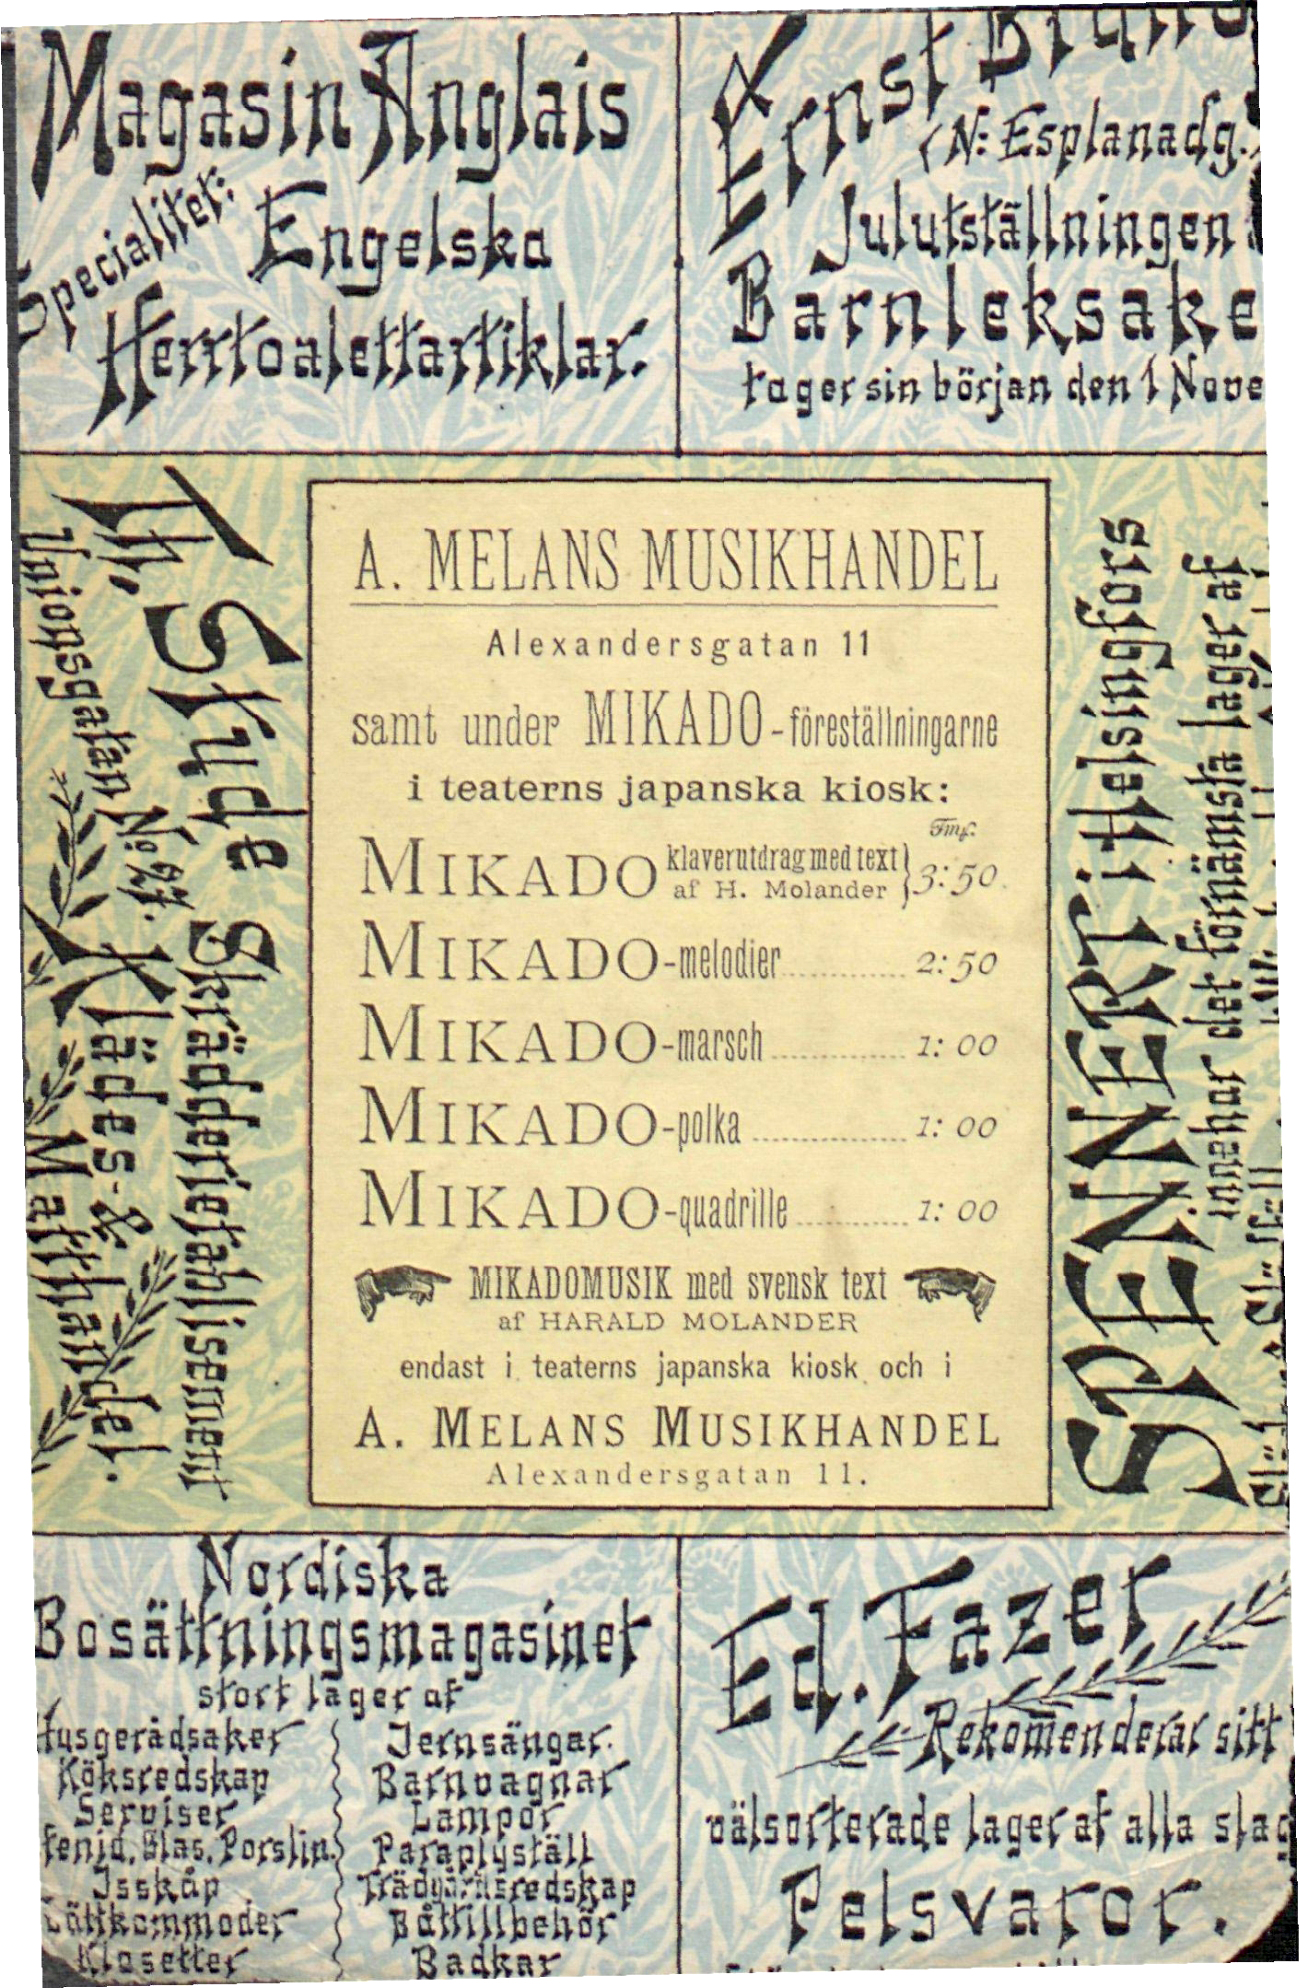 Magasin Anglais
Specialitet:
Engelska
Herrtoalettartiklar.
Ernst
(N: Esplanadg.
Julutställningen
Barnleksake
tager sin början den 1 Nove
Unionsgatan No 27.
Klädes- &
Skrädderietablissement
A. MELANS MUSIKHANDEL
Alexandersgatan 11
samt under MIKADO-föreställningarne
i teaterns japanska kiosk:
Fmk.
MIKADO klaverutdrag med text} 3:50.
af H. Molander
MIKADO-melodier............ 2:50
MIKADO-marsch............ 1:00
MIKADO-polka............ 1:00
MIKADO-quadrille............ 1:00
MIKADOMUSIK med svensk text
af HARALD MOLANDER
endast i teaterns japanska kiosk och i
A. MELANS MUSIKHANDEL
Alexandersgatan 11.
SPENNERT i Helsingfors
innehar det förnämsta lager af
Nordiska
Bosättningsmagasinet
stort lager af
Husgerådsaker
Köksredskap
Serviser
Fenid. Glas. Porslin.
Isskåp
Tättkommoder
Klosetter
Jernsängar.
Barnvagnar
Lampor
Paraplyställ
Trädgårdsredskap
Båttillbehör
Badkar
Ed. Fazer
Rekomenderar sitt
välsorterade lager af alla slag
Pelsvaror.